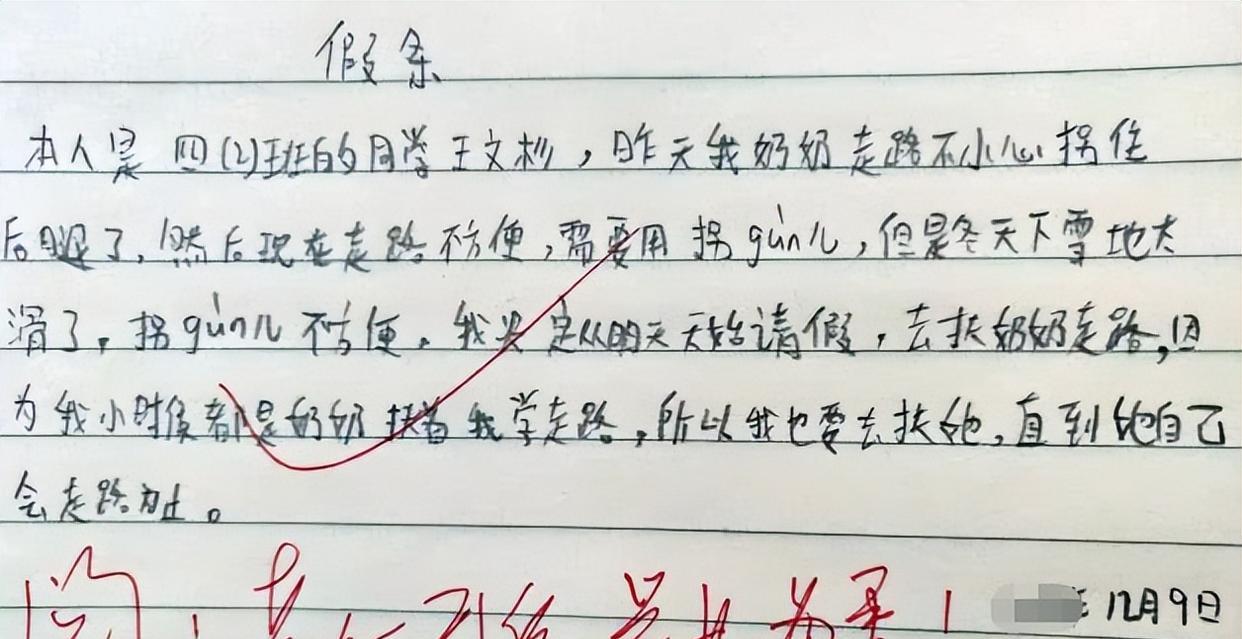 假条
本人是四(2)班的同学王文杉，昨天我奶奶走路不小心拐住
后腿了，然后现在走路不方便，需要用拐gùnㄦ，但是冬天下雪地太
滑了，拐gùnㄦ不方便。我决定从明天天始请假，去扶奶奶走路，因
为我小时候都是奶奶扶着我学走路，所以我也要去扶她，直到她自己
会走路为止。
12月9日